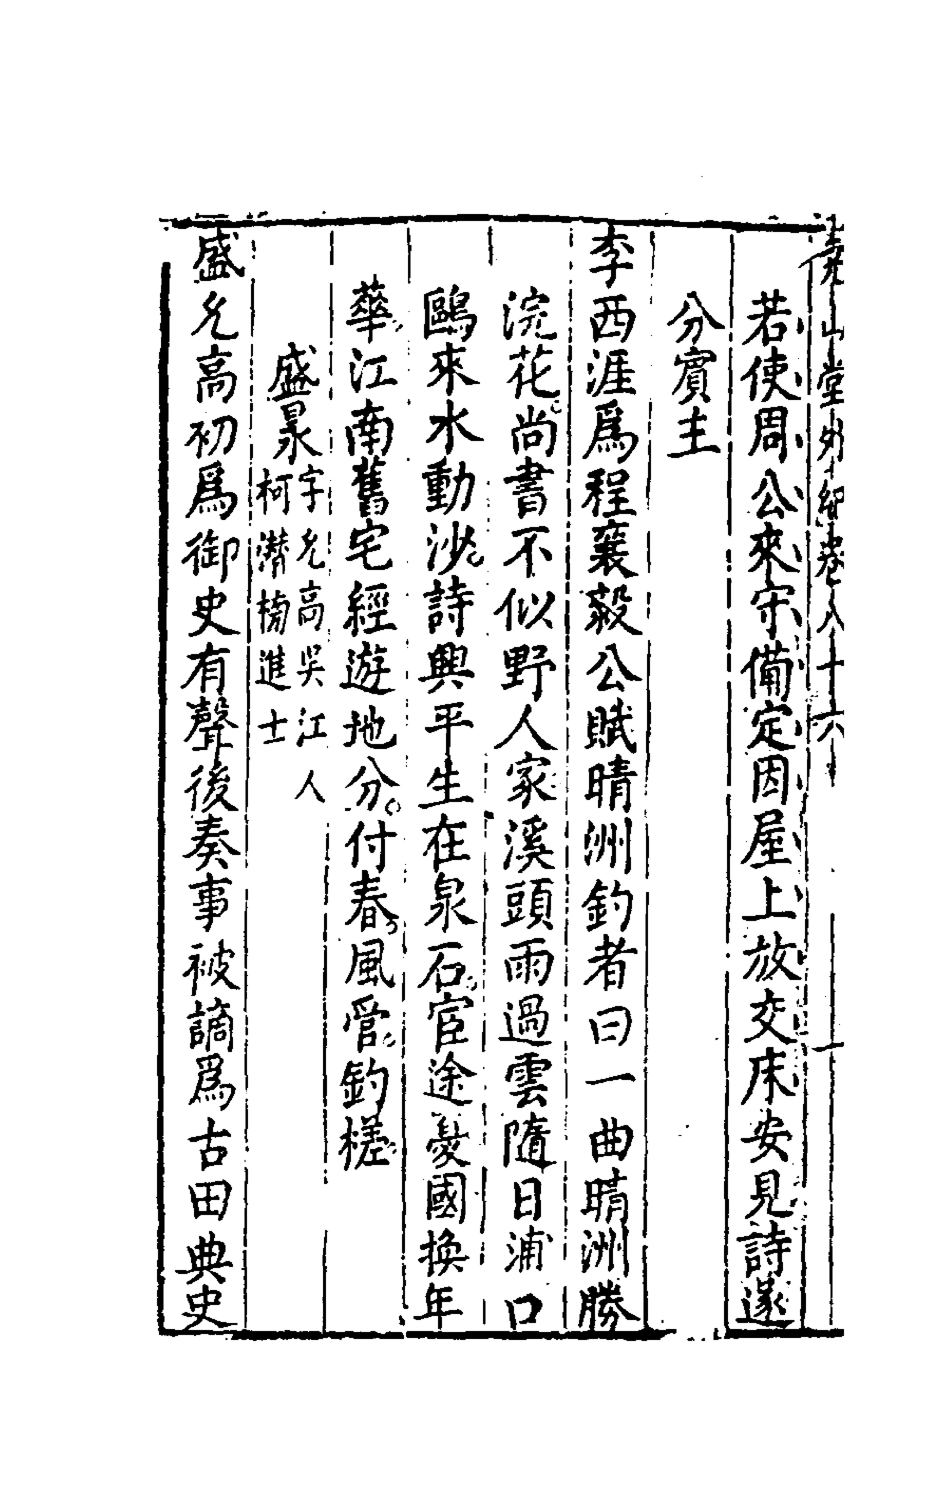 堯山堂外紀卷八十六 一
若使周公來宋備定因屋上放交床安見詩遂
分賓主
李西涯爲程襄毅公賦晴洲釣者曰一曲晴洲勝
浣花尚書不似野人家溪頭雨過雲隨日浦口
鷗來水動沙詩興平生在泉石宦途憂國換年
華江南舊宅經遊地分付春風管釣槎
盛㫤字允高吳江人
柯潛榜進士
盛允高初爲御史有聲後奏事被謫爲古田典史